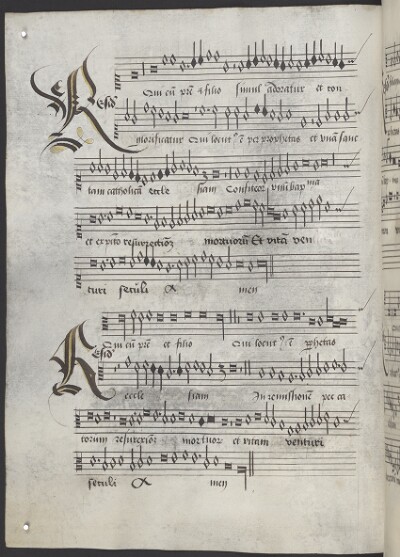 Residuum
Qui cū pr̄e et filio simul adoratur et con
glorificatur Qui locut9 ē per prophetas et unā sanc
tam catholicā eccle siam Confiteor unū bap ma
et expecto resurrectionē mortuorū Et vitā ven
turi seculi A men
Residuum
Qui cū pr̄e et filio Qui locut9 ē prophetas
eccle siam In remissionē pec ca
torum resurrexionē mortuor et vitam venturi
seculi A men